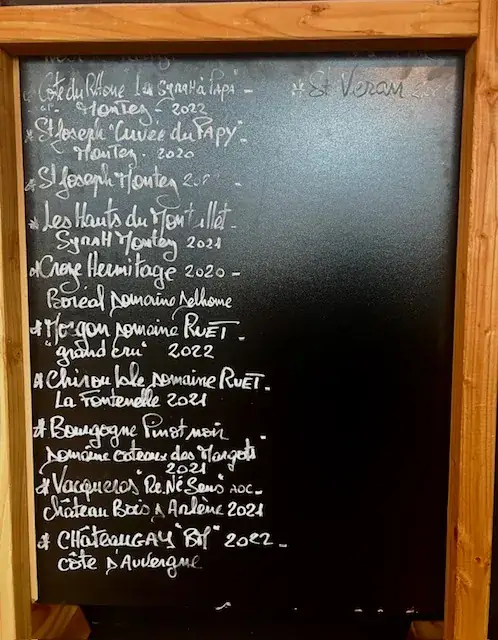 * Côte du Rhône "La Syrah à Papa" -
"" Montez - 2022
* St Joseph "Cuvée du PAPY" -
Montez - 2020
* St Joseph Montez 20 -
* Les Hauts du Mont -
Syrah Montez 2021
* Croze Hermitage 2020 -
Boréal Domaine Delhome
* Morgon Domaine RUET -
"grand cru" 2022
* Chiroubale Domaine RUET -
La Fontenelle 2021
* Bourgogne Pinot noir -
Domaine coteaux des Margots
2021
* Vacqueras "Re.Né Sens" AOC -
château Bois D Arlène 2021
* CHâteauGAY 2022 -
côte D'Auvergne
* St Veran